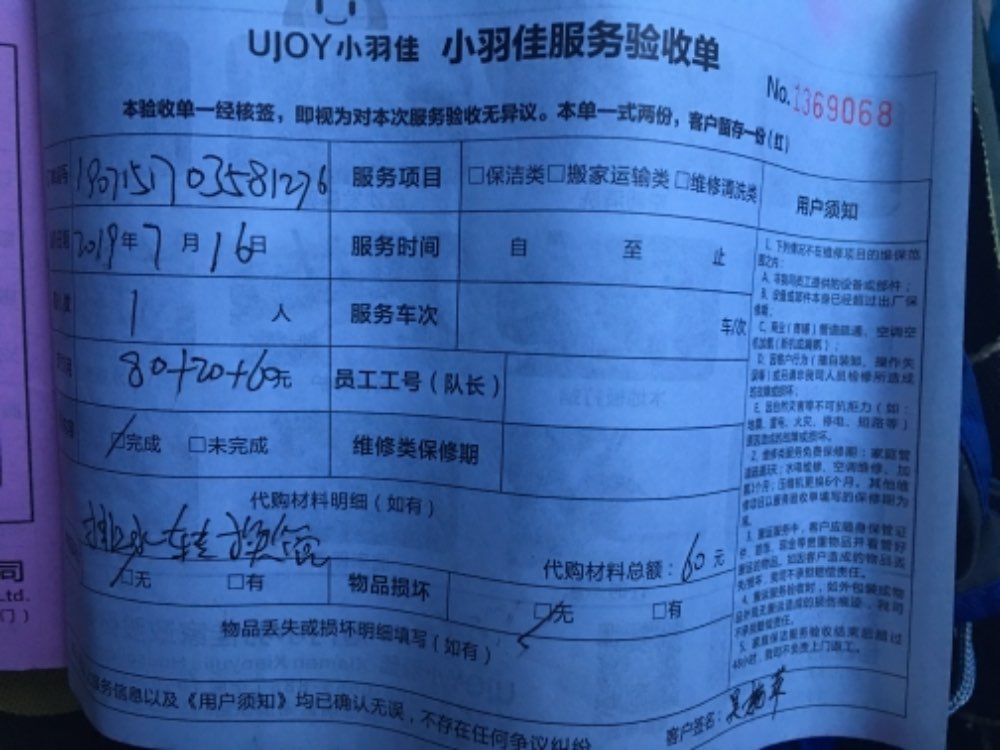 UJOY小羽佳 小羽佳服务验收单
No.1369068
本验收单一经核签，即视为对本次服务验收无异议。本单一式两份，客户留存一份(红)
1907151703581276 服务项目 □保洁类□搬家运输类□维修清洗类 用户须知
2019年7月16日 服务时间 自 至 止
1 人 服务车次 车/次
80+20+60元 员工工号（队长）
□完成 □未完成 维修类保修期
代购材料明细（如有）
排水转换管
代购材料总额：60元
□无 □有 物品损坏 □无 □有
物品丢失或损坏明细填写（如有）
服务信息以及《用户须知》均已确认无误，不存在任何争议纠纷
客户签名：
1、下列情况不在维修项目的维保范围之内：
A、非我司员工提供的设备或部件；
B、设备或部件本身已经超过出厂保修期；
C、商业（商铺）管道疏通、空调空机加氨（新机或漏氨）；
D、因客户行为（擅自装卸、操作失误等）或后请非我司人员检修所造成的故障或损坏；
E、因自然灾害等不可抗拒力（如：地震、雷电、火灾、停电、短路等）原因造成的故障或损坏。
2、维修类服务免费保修期：家庭管道疏通
水电维修、空调维修、加
压缩机更换6个月。其他维修项目以服务验收单填写的保修期为准。
3、搬运服务中，客户应随身保管证件、首饰、现金等贵重物品并看管好搬运的物品。如因客户造成的物品丢失/损坏，我司不承担赔偿责任。
4、搬运服务验收时，如外包装或物品外观无搬运造成的损伤痕迹，我司不承担赔偿责任。
5、家庭保洁服务验收结束后超过48小时，我司不负责上门返工。
司
Ltd.
门）